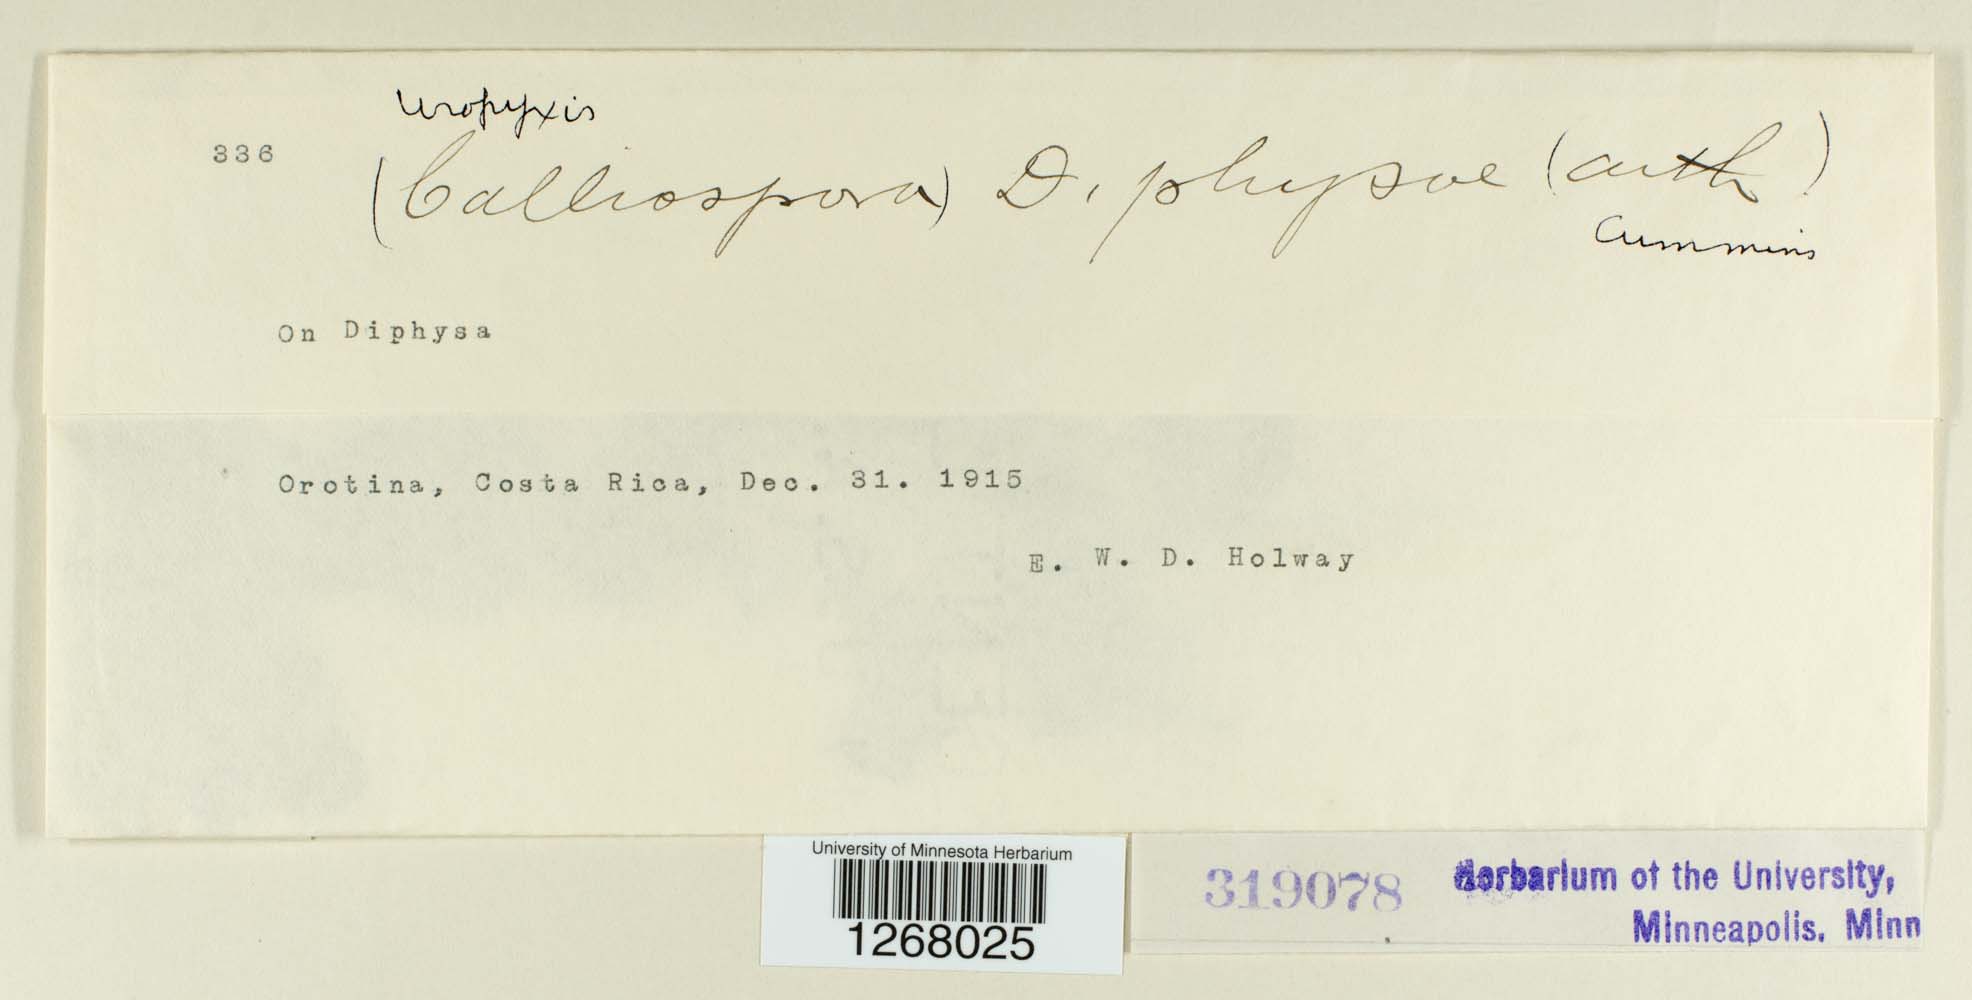 Uropyxis
336 (Calliospora) Diphysae (Arth)
Cummins
On Diphysa
Orotina, Costa Rica, Dec. 31. 1915
E. W. D. Holway
University of Minnesota Herbarium
1268025
319078
Herbarium of the University,
Minneapolis, Minn